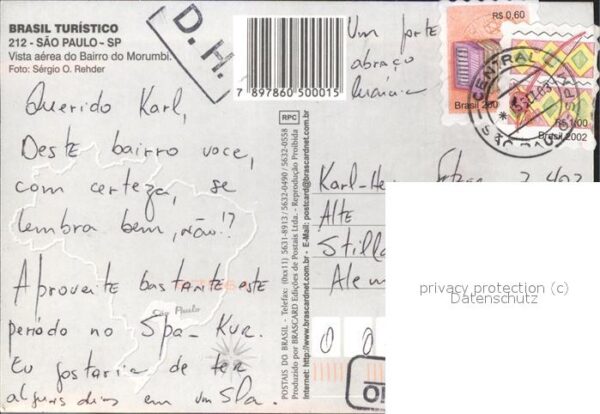 BRASIL TURÍSTICO
212 - SÃO PAULO - SP
Vista aérea do Bairro do Morumbi.
Foto: Sérgio O. Rehder
D. H.
7 897860 500015
Um forte
abraço
R$ 0,60
Brasil 200
R$ 1,00
Brasil 2002
CENTRAL
SÃO PAULO
Querido Karl,
Deste bairro voce,
com certeza, se
lembra bem, não!?
Aproveite bastante este
período no Spa-Kur.
Eu gostaria de ter
alguns dias em um Spa.
São Paulo
RPC
POSTAIS DO BRASIL - Telefax: (0xx11) 5631-8913 / 5632-0490 / 5632-0558
Produzido por BRASCARD Edições de Postais Ltda. - Reprodução Proibida
Internet: http://www.brascardnet.com.br - E-Mail: postcard@brascardnet.com.br
Karl-He
Alte
Stilla
Alem
0 0
privacy protection (c)
Datenschutz